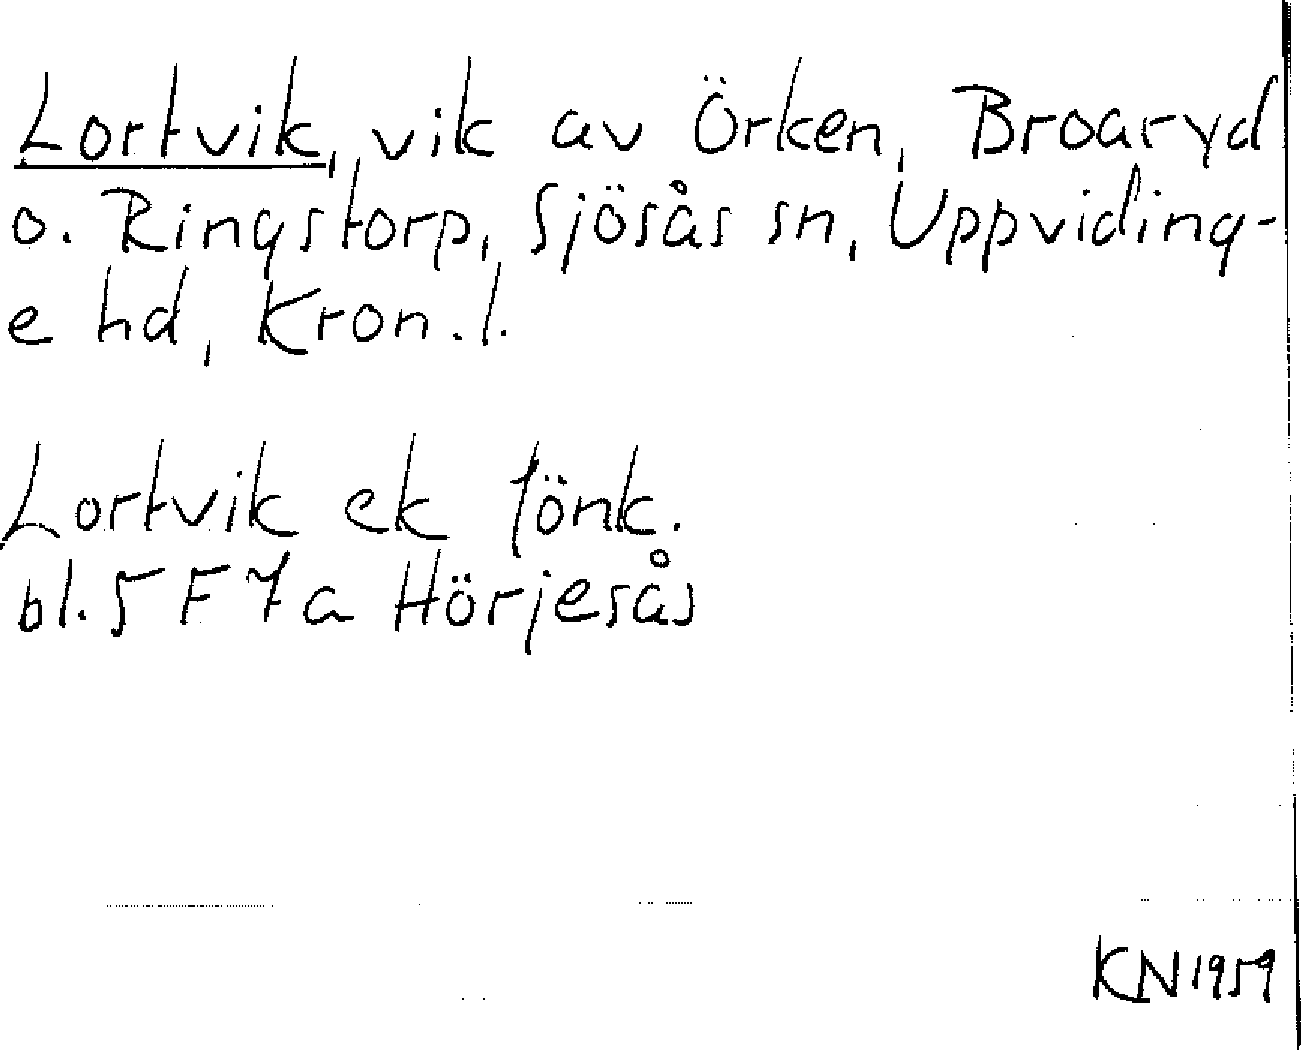 Lortvik, vik av Örken, Broaryd
o. Ringstorp, Sjösås sn, Uppviding-
e hd, Kron. l.
Lortvik ek Jönk.
bl. 5 F 7 a Hörjesås
KN 1959